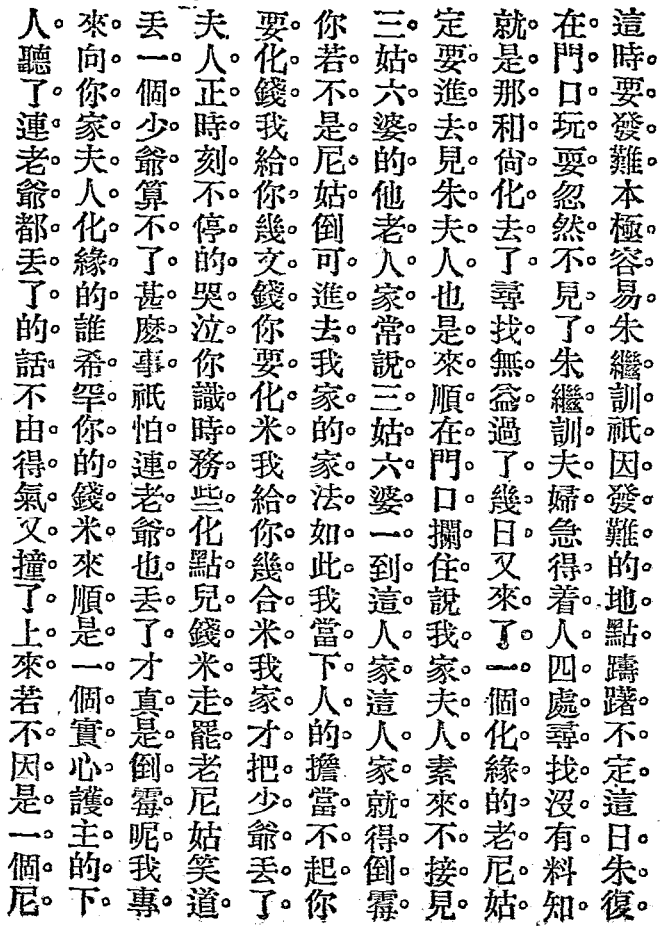 這時。要。發。難。本極。容。易。朱繼。訓。祇。因。發。難。的。地。點。躊。躇。不。定。這日。朱。復。
在。門。口。玩耍。忽然。不。見。了。朱繼。訓。夫婦。急。得。着人。四處。尋。找。沒有料知。
就。是。那。和。尙。化。去。了。尋。找。無。益。過了。幾。日。又來。了。一。個。化。緣。的。老。尼。姑。
定要。進。去。見。朱夫。人。也是。來。順。在。門。口。攔。住。說我。家。夫。人。素來。不。接。見。
三。姑。六。婆。的。他老。人。家。常。說。三。姑。六。婆。一。到。這。人。家。這人。家。就。得。倒。霉。
你若。不。是。尼。姑。倒可。進。去。我家。的。家。法。如。此。我當。下。人。的。擔。當。不。起。你
要。化。錢。我給。你。幾。文。錢。你要。化。米。我給。你。幾。合。米。我家。才。把。少。爺。丟。了。
夫人。正。時刻。不停。的。哭。泣。你識。時。務。些。化點。兒。錢。米。走。罷。老尼。姑笑道。
丟。一。個。少。爺。算不。了。甚。麽。事。祇怕。連。老。爺。也。丟。了。才真。是。倒。霉。呢。我專。
來。向。你。家。夫。人。化。緣。的。誰希。罕。你。的。錢。米。來順。是。一。個。實。心。護。主。的。下。
人。聽了。連。老。爺。都。丟。了。的。話不。由。得。氣。又。撞。了。上。來。若不。因。是。一。個。尼。